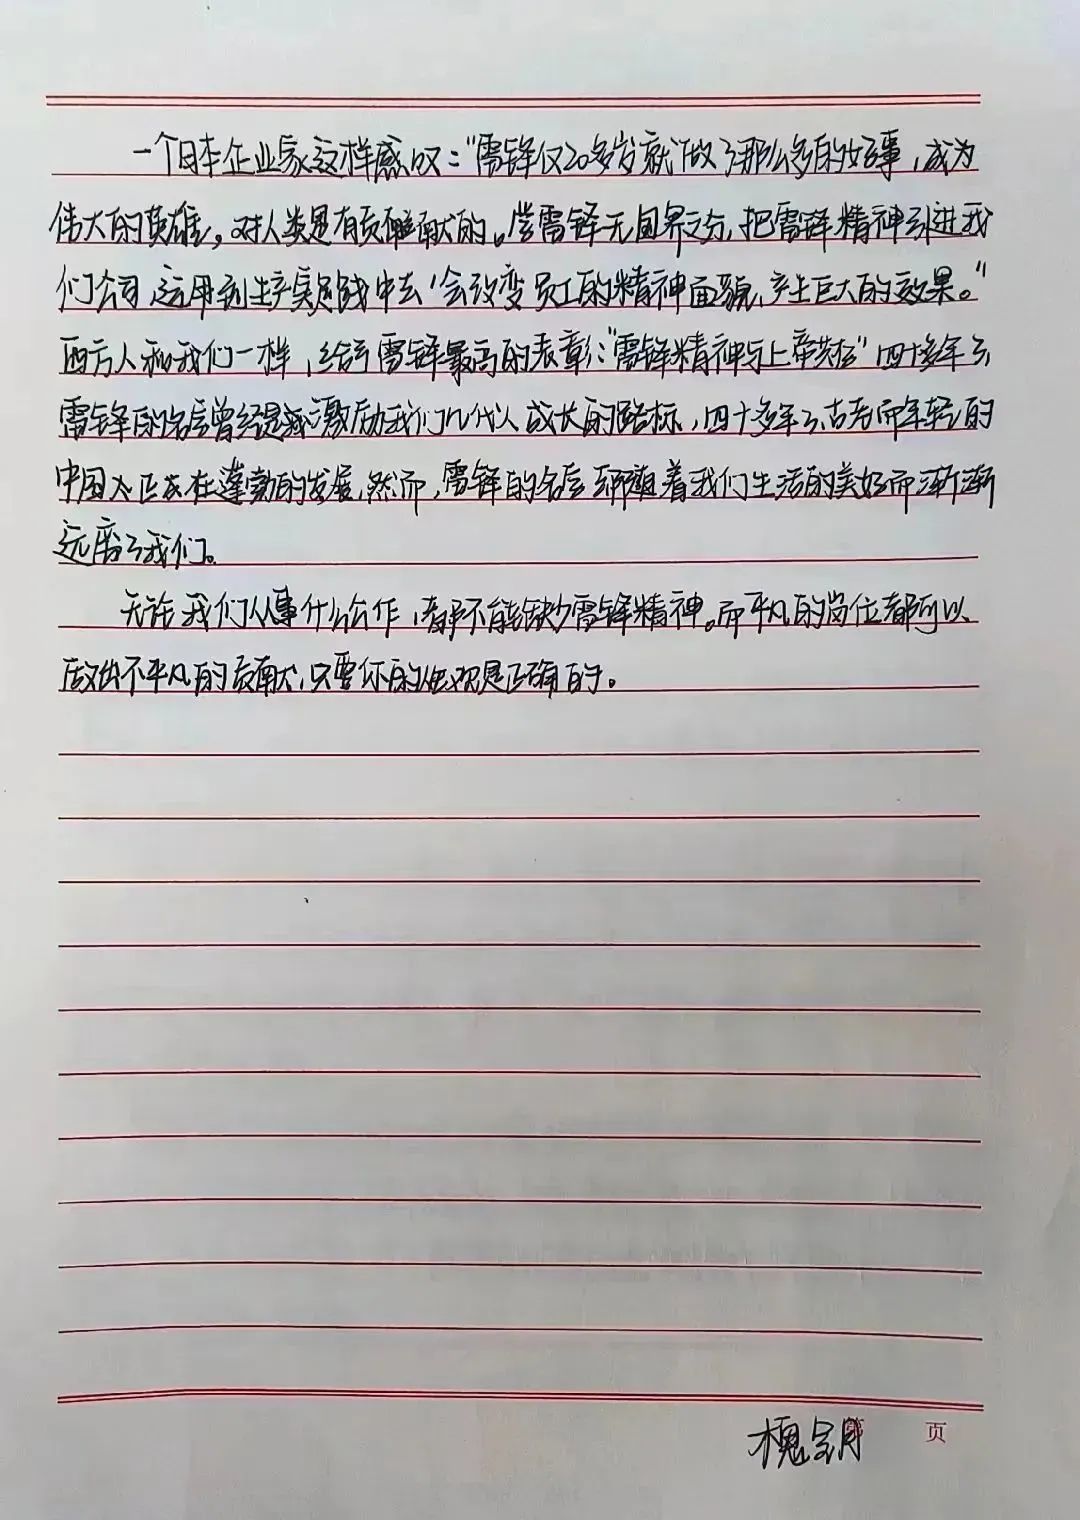 一个日本企业家这样感叹：“雷锋仅20多岁就做了那么多的好事，成为
伟大的英雄，对人类是有贡献的。学雷锋无国界之分，把雷锋精神引进我
们公司，运用到生产实践中去，会改变员工的精神面貌，产生巨大的效果。”
西方人和我们一样，给予雷锋最高的表彰：“雷锋精神与上帝共在”四十多年了
雷锋的名字曾经是激励我们几代人成长的路标，四十多年了，古老而年轻的
中国也正在蓬勃的发展，然而，雷锋的名字却随着我们生活的美好而渐渐
远离了我们。
无论我们从事什么工作，都不能缺少雷锋精神。而平凡的岗位都可以
做出不平凡的贡献，只要你的观是正确的。
槐
第 页